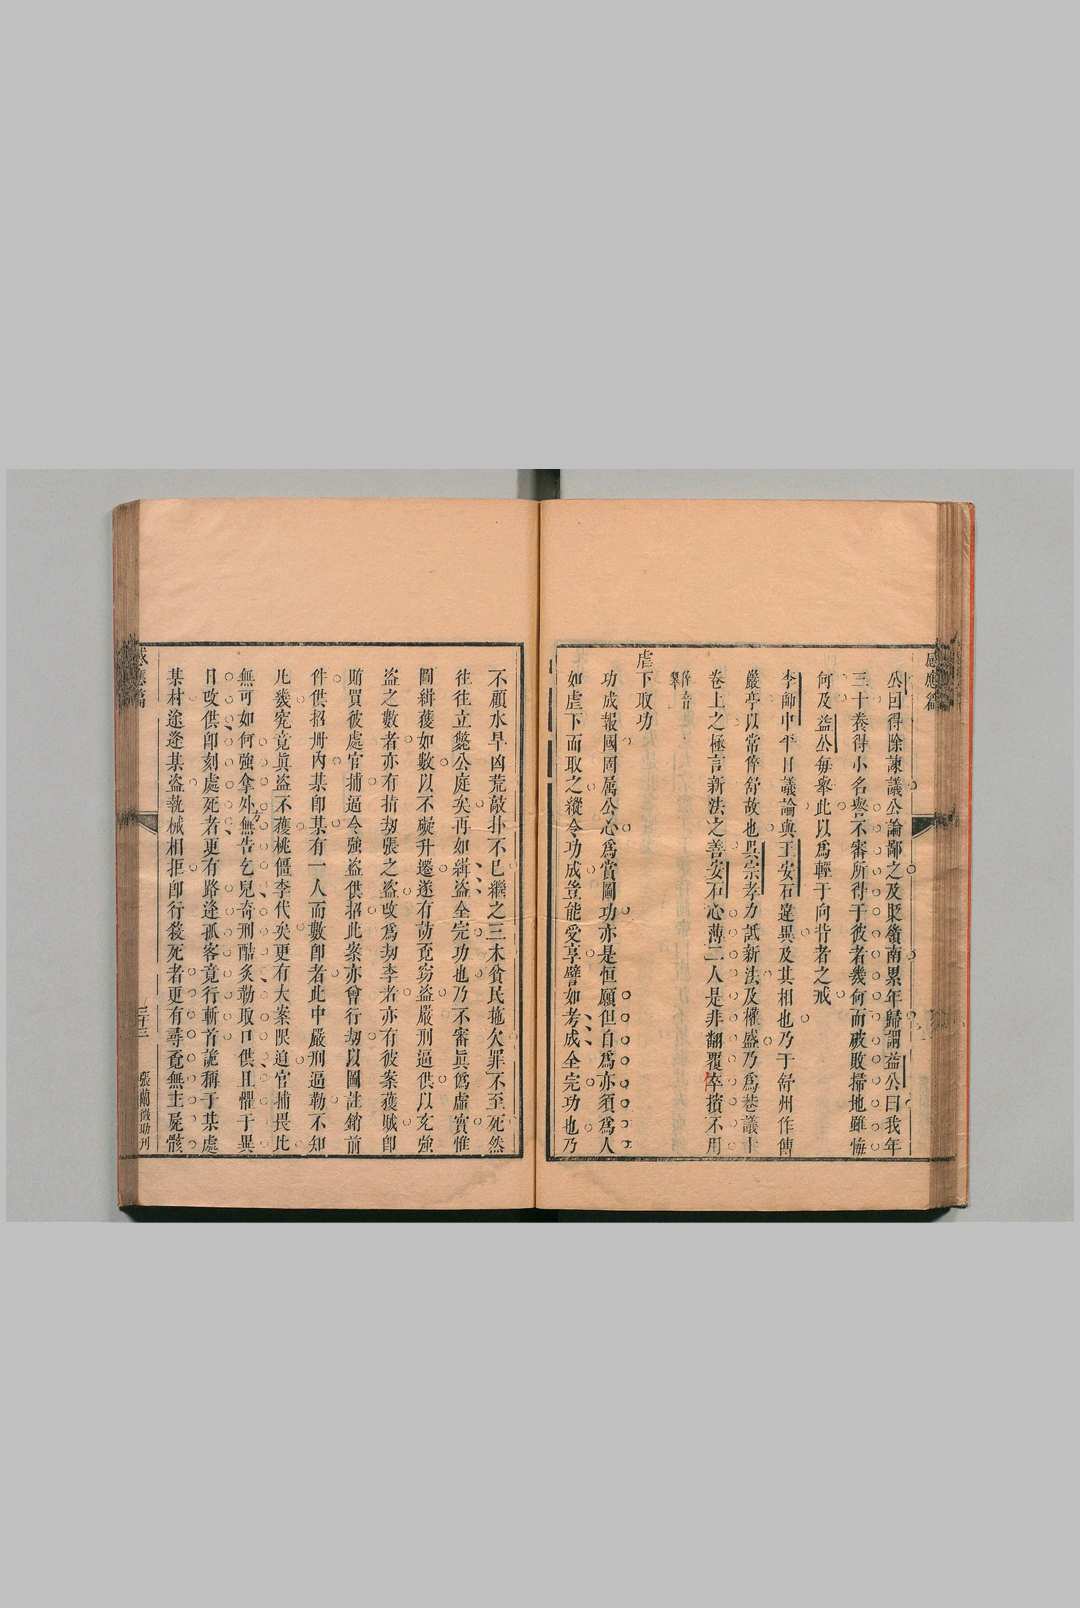 感應篇
公因得除諫議公論鄙之及貶嶺南累年歸謂益公曰我年
三十養得小名譽不審所得于彼者幾何而破敗掃地雖悔
何及益公每舉此以爲輕于向背者之戒
李師中平日議論與王安石違異及其相也乃于舒州作傳
巖亭以常倅舒故也吳宗孝力詆新法及權盛乃爲巷議十
卷上之極言新法之善安石心薄二人是非翻覆卒擯不用
虐下取功
功成報國罔屬公心爲賞圖功亦是恒願但自爲亦須爲人
如虐下而取之縱令功成豈能受享譬如考成全完功也乃
不顧水旱凶荒敲扑不已繼之三木貧民拖欠罪不至死然
往往立斃公庭矣再如緝盜全完功也乃不審眞僞虛實惟
圖緝獲如數以不礙升遷遂有苟竟窃盜嚴刑逼供以充強
盜之數者亦有指刼張之盜改爲刼李者亦有彼案獲賊卽
賄買彼處官捕逼令強盜供招此案亦曾行刼以圖註銷前
件供招冊內某卽某有一人而數卽者此中嚴刑逼勒不知
凡幾究竟眞盜不獲桃僵李代矣更有大案限迫官捕畏比
無可如何強拿外方無告乞兒奇刑酷炙勒取口供且懼于異
日改供卽刻處死者更有路逢孤客竟行斬首詭稱于某處
某村途逢某盜執械相拒卽行殺死者更有尋覓無主屍骸
感應篇
三十三
張蘭徵助刊